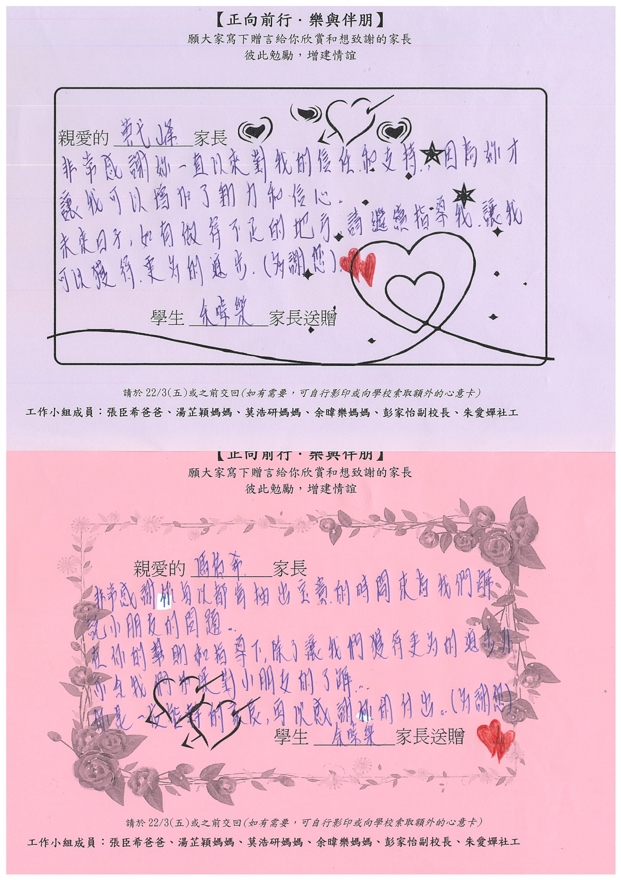 【正向前行．樂與伴朋】
願大家寫下贈言給你欣賞和想致謝的家長
彼此勉勵，增建情誼
親愛的 家長
非常感謝你一直以來對我的信任和支持，因為妳才
讓我可以增加了動力和信心。
未來日子，如有做得不足的地方，請繼續指導我，讓我
可以獲得更多的進步。(多謝您)
學生 余暐樂 家長送贈
請於 22/3(五)或之前交回(如有需要，可自行影印或向學校索取額外的心意卡)
工作小組成員：張臣希爸爸、湯芷穎媽媽、莫浩研媽媽、余暐樂媽媽、彭家怡副校長、朱愛嬋社工
【正向前行．樂與伴朋】
願大家寫下贈言給你欣賞和想致謝的家長
彼此勉勵，增建情誼
親愛的 家長
非常感謝你 抽出 的時間來為我們解
小朋友的問題..
在你的幫助和指導下，除了讓我們獲得更多的進步
令我 對小朋友的了解...
可以感謝你的付出..(多謝您)
學生 余暐樂 家長送贈
請於 22/3(五)或之前交回(如有需要，可自行影印或向學校索取額外的心意卡)
工作小組成員：張臣希爸爸、湯芷穎媽媽、莫浩研媽媽、余暐樂媽媽、彭家怡副校長、朱愛嬋社工